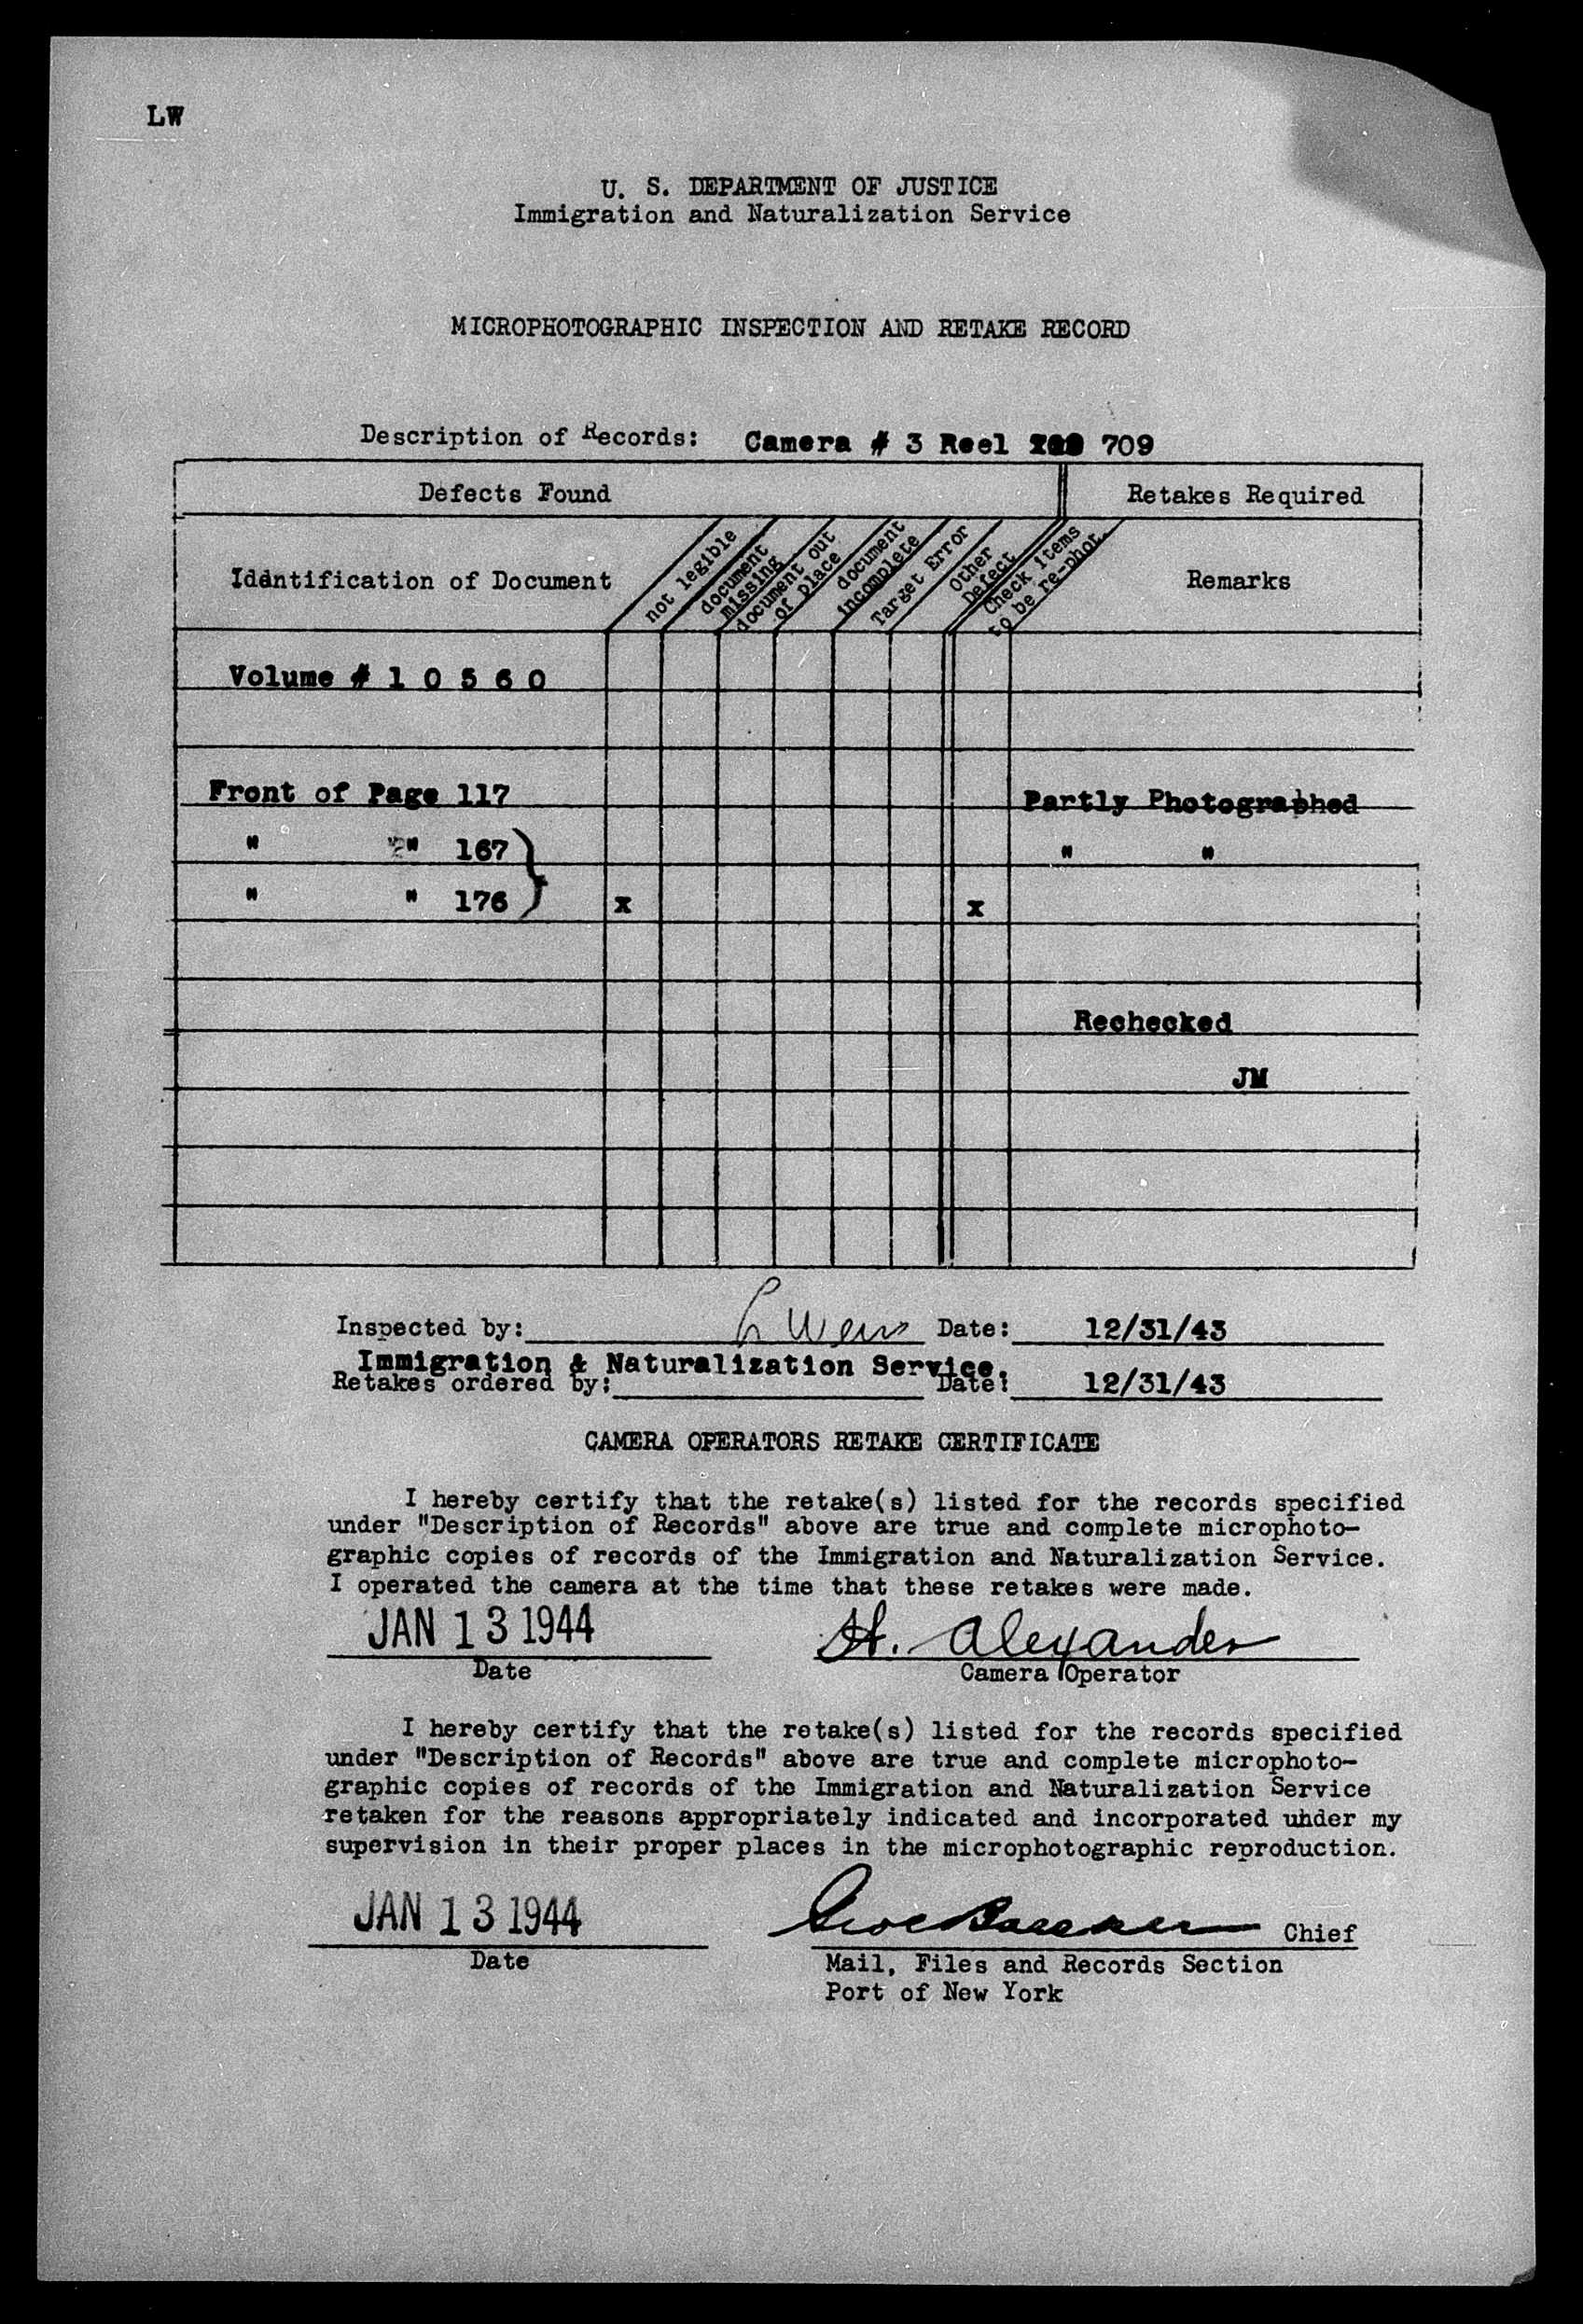 LW
U. S. DEPARTMENT OF JUSTICE
Immigration and Naturalization Service
MICROPHOTOGRAPHIC INSPECTION AND RETAKE RECORD
Description of Records: Camera # 3 Reel 709
Defects Found Retakes Required
Identification of Document
not legible
document
missing
document out
of place
document
incomplete
Target Error
Other
Defect
Check items
to be re-phot.
Remarks
Volume # 1 0 5 6 0
Front of Page 117 Partly Photographed
" " 167 " "
" " 176 } x x
Rechecked
JM
Inspected by: L Weiss Date: 12/31/43
Immigration & Naturalization Service.
Retakes ordered by: Date: 12/31/43
CAMERA OPERATORS RETAKE CERTIFICATE
I hereby certify that the retake(s) listed for the records specified
under "Description of Records" above are true and complete microphoto-
graphic copies of records of the Immigration and Naturalization Service.
I operated the camera at the time that these retakes were made.
JAN 13 1944 H. Alexander
Date Camera Operator
I hereby certify that the retake(s) listed for the records specified
under "Description of Records" above are true and complete microphoto-
graphic copies of records of the Immigration and Naturalization Service
retaken for the reasons appropriately indicated and incorporated under my
supervision in their proper places in the microphotographic reproduction.
JAN 13 1944 Chief
Date Mail, Files and Records Section
Port of New York